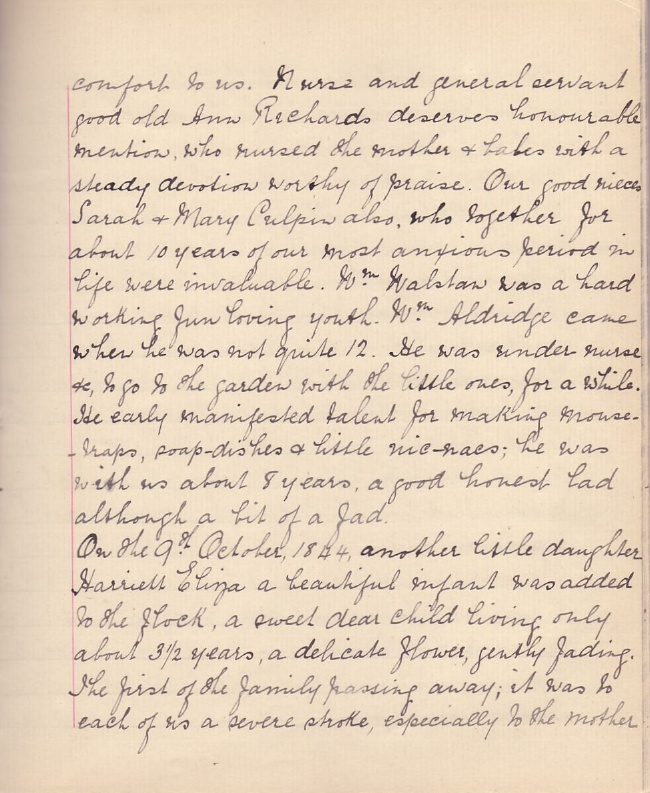 comfort to us. Nurse and general servant
good old Ann Richards deserves honourable
mention, who nursed the mother & babes with a
steady devotion worthy of praise. Our good nieces
Sarah & Mary Culpin also, who together for
about 10 years of our most anxious period in
life were invaluable. Wm Walstan was a hard
working fun loving youth. Wm Aldridge came
when he was not quite 12. He was under-nurse
&c, to go to the garden with the little ones, for a while.
He early manifested talent for making mouse-
-traps, soap-dishes & little nic-nacs; he was
with us about 8 years, a good honest lad
although a bit of a fad.
On the 9th October, 1844, another little daughter
Harriett Eliza a beautiful infant was added
to the flock, a sweet dear child living only
about 3½ years, a delicate flower, gently fading.
The first of the family passing away; it was to
each of us a severe stroke, especially to the mother